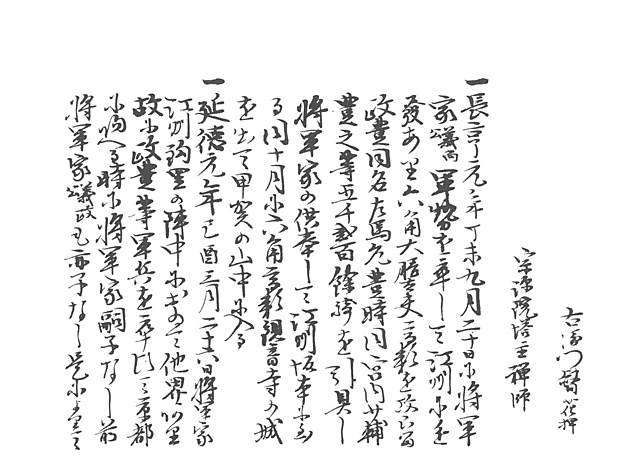 右衛門督花押
宗源院塔主禅師
一長享元年丁未九月二十日に将軍
家義尚軍勢を率して江州に進
發あり六角大膳大夫高頼を攻らる
政豊同名左馬允豊時同宮内少輔
豊之等五千貳百餘騎を引具し
将軍家の供奉して江州坂本に至
る同十月に六角高頼観音寺の城
を出て甲賀の山中に入る
一延徳元年己酉三月二十六日将軍家
江州鈎里の陣中におゐて他界
故に政豊等軍兵を率ひて京都
に帰へる時に将軍家嗣子なし前
将軍家義政も亦子なし是によって